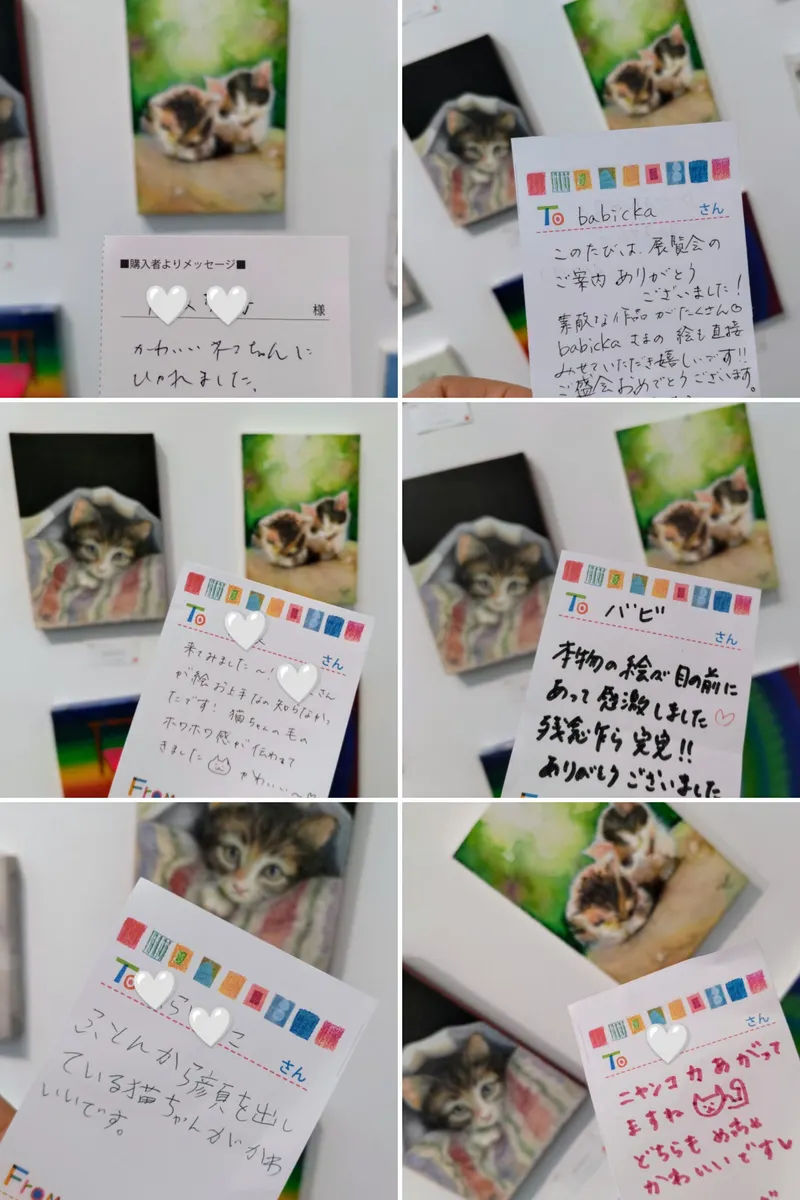 ■購入者よりメッセージ■
様
かわいい ネコちゃんに
ひかれました。
To babicka さん
このたびは、展覧会の
ご案内 ありがとう
ございました!
素敵な作品がたくさん♡
babicka さまの 絵も直接
みせていただき嬉しいです!!
ご盛会おめでとうございます。
To さん
来てみました〜!
さん
が絵お上手なの知らなかっ
たです! 猫ちゃんの毛の
ホワホワ感が伝わって
きました
かわいい〜♡
From
To バビ さん
本物の絵が目の前に
あって感激しました♡
残念乍ら 完売!!
ありがとうございました
To らこ さん
ふとんから顔を出し
ている猫ちゃんがかわ
いいです。
From
To さん
ニャンコ力あがって
ますね
どちらも めっちゃ
かわいいです